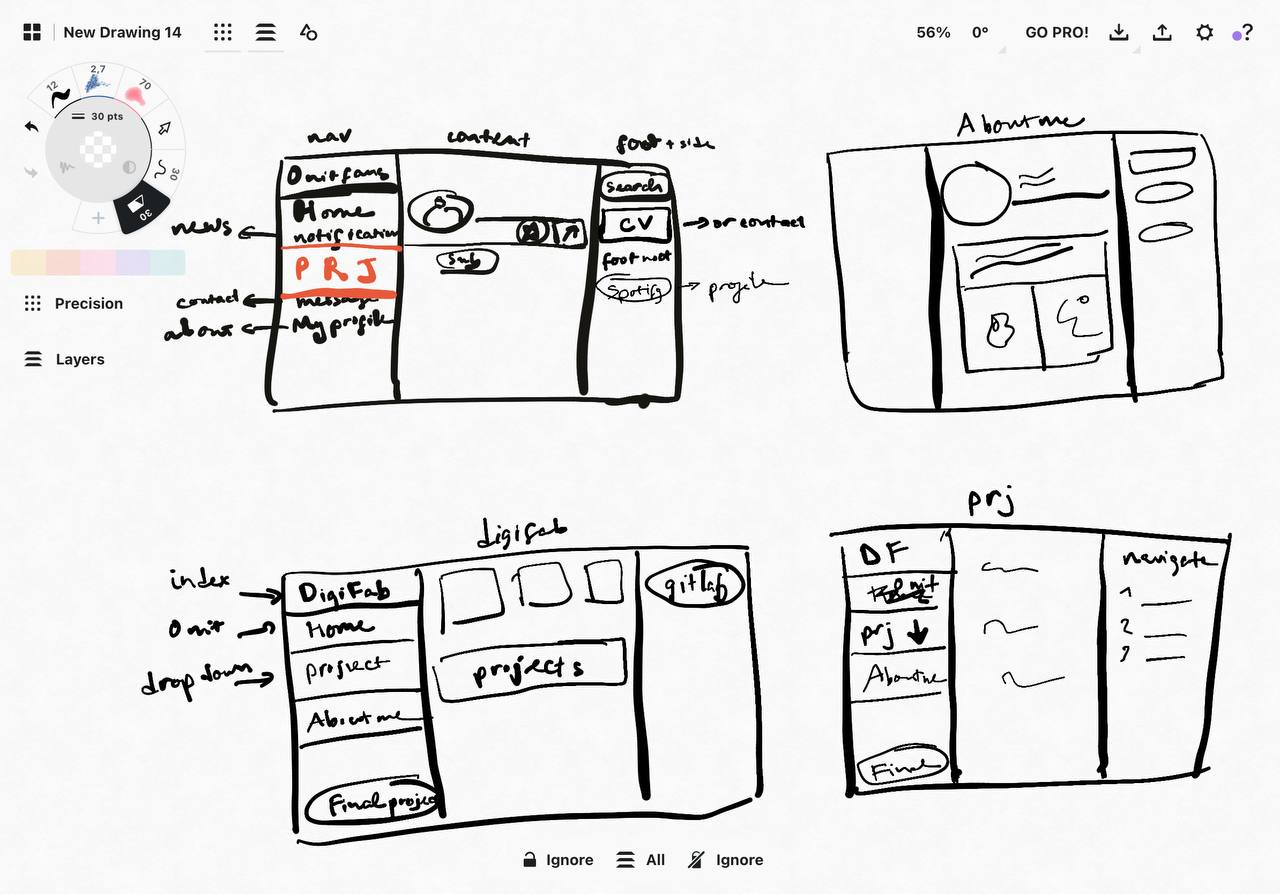 New Drawing 14
56%
0°
GO PRO!
?
2,7
12
70
30 pts
30
30
Precision
Layers
nav
content
foot + side
Home
notification
PRJ
message
My profile
news
contact
about
search
CV
or contact
Spotify
About me
digifab
index
Omit
drop down
DigiFab
Home
project
About me
Final project
projects
gitlab
prj
DF
prj
About me
Final
navigate
1
2
3
Ignore
All
Ignore